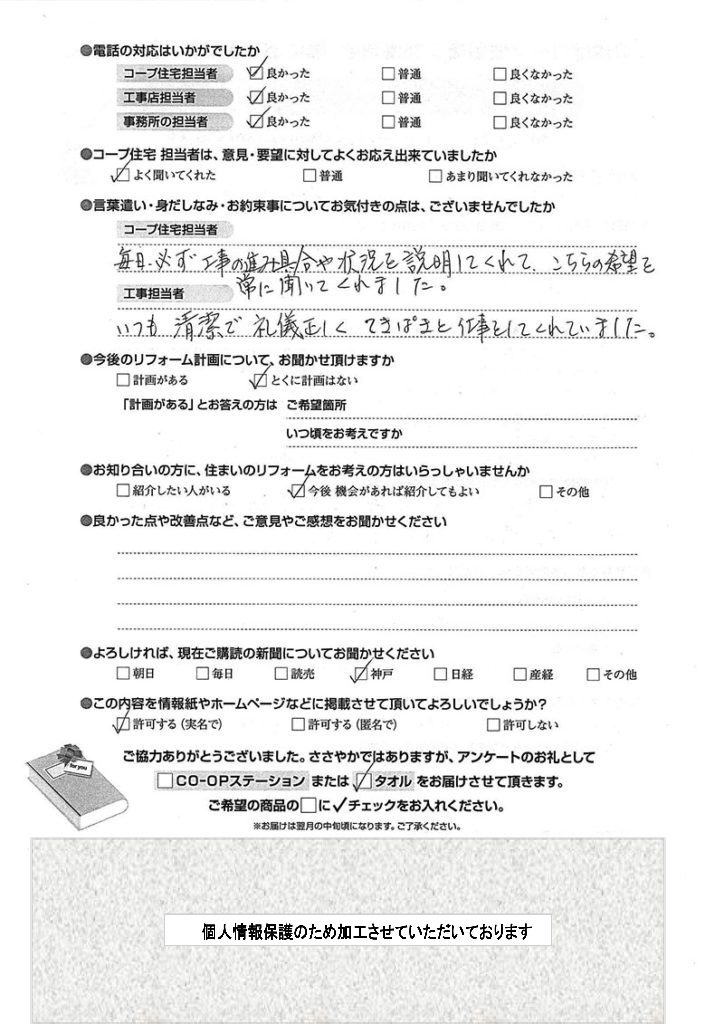 ●電話の対応はいかがでしたか
コープ住宅担当者 ☑良かった □普通 □良くなかった
工事店担当者 ☑良かった □普通 □良くなかった
事務所の担当者 ☑良かった □普通 □良くなかった
●コープ住宅 担当者は、意見・要望に対してよくお応え出来ていましたか
☑よく聞いてくれた □普通 □あまり聞いてくれなかった
●言葉遣い・身だしなみ・お約束事についてお気付きの点は、ございませんでしたか
コープ住宅担当者
毎日、必ず工事の進み具合や状況を説明してくれて、こちらの希望を
常に聞いてくれました。
工事担当者
いつも清潔で礼儀正しくてきぱきと仕事をしてくれていました。
●今後のリフォーム計画について、お聞かせ頂けますか
□計画がある ☑とくに計画はない
「計画がある」とお答えの方は ご希望箇所
いつ頃をお考えですか
●お知り合いの方に、住まいのリフォームをお考えの方はいらっしゃいませんか
□紹介したい人がいる ☑今後 機会があれば紹介してもよい □その他
●良かった点や改善点など、ご意見やご感想をお聞かせください
●よろしければ、現在ご購読の新聞についてお聞かせください
□朝日 □毎日 □読売 ☑神戸 □日経 □産経 □その他
●この内容を情報紙やホームページなどに掲載させて頂いてよろしいでしょうか?
☑許可する(実名で) □許可する(匿名で) □許可しない
ご協力ありがとうございました。ささやかではありますが、アンケートのお礼として
□CO-OPステーション または ☑タオル をお届けさせて頂きます。
ご希望の商品の□に✓チェックをお入れください。
※お届けは翌月の中旬頃になります。ご了承ください。
for you
個人情報保護のため加工させていただいております